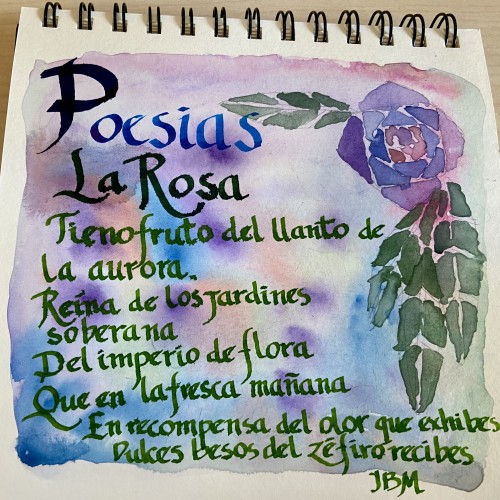 Poesias
La Rosa
Tienofruto del llanto de
la aurora..
Reina de los jardines
soberana
Del imperio de flora
Que en la fresca mañana
En recompensa del olor que exhibes
Dulces besos del zéfiro recibes
JBM